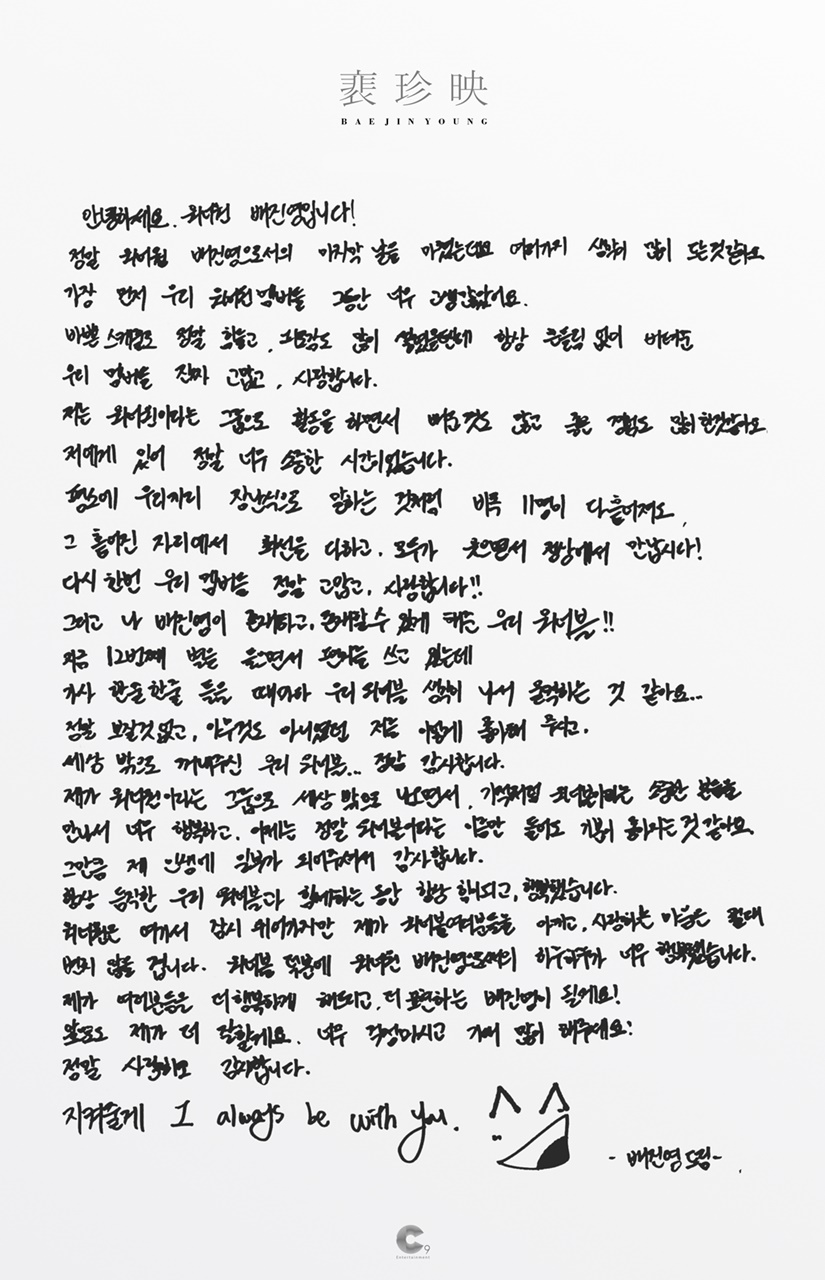 裵珍映
BAE JIN YOUNG
안녕하세요. 워너원 배진영입니다!
정말 워너원 배진영으로서의 마지막 날을 마쳤는데요 여러가지 생각이 많이 드는것같아요
가장 먼저 우리 워너원멤버들 그동안 너무 고생많았어요.
바쁜 스케줄도 정말 힘들고, 부담감도 많이 됐었을텐데 항상 큰들림 없이 버텨준
우리 멤버들 진짜 고맙고, 사랑합니다.
저는 워너원이라는 그룹으로 활동을 하면서 배운것도 많고 좋은 경험도 많이한것같아요
저에게 있어 정말 너무 소중한 시간이었습니다.
평소에 우리끼리 장난식으로 말하는 것처럼 비록 11명이 다 흩어져도,
그 흩어진 자리에서 최선을 다하고, 모두가 웃으면서 정상에서 만납시다!
다시 한번 우리 멤버들 정말 고맙고, 사랑합니다!!
그리고 나 배진영이 존재하고, 존재할 수 있게 해준 우리 워너블!!
지금 12번째 별을 들으면서 편지를 쓰고 있는데
가사 한줄 한줄 들을 때마다 우리 워너블 생각이 나서 울컥하는 것 같아요...
정말 보잘것 없고, 아무것도 아니었던 저를 이렇게 좋아해 주시고,
세상 밖으로 꺼내주신 우리 워너블... 정말 감사합니다.
제가 워너원이라는 그룹으로 세상 밖으로 나오면서, 기적처럼 워너블이라는 소중한 분들을
만나서 너무 행복하고, 이제는 정말 워너블이라는 이름만 들어도 기분이 좋아지는것 같아요
그만큼 제 인생에 일부가 되어주셔서 감사합니다.
항상 듬직한 우리 워너블과 함께하는 동안 항상 힘이되고, 행복했습니다.
워너원은 여기서 잠시 쉬어가지만 제가 워너블여러분들을 아끼고, 사랑하는 마음은 절대
변치 않을 겁니다. 워너블 덕분에 워너원 배진영으로서의 하루하루가 너무 행복했습니다.
제가 여러분들을 더 행복하게 해드리고, 더 표현하는 배진영이 될게요!
앞으로도 제가 더 잘할게요. 너무 걱정마시고 기대 많이 해주세요!
정말 사랑하고 감사합니다.
지켜줄게 I always be with you.
- 배진영 드림 -
C9
Entertainment